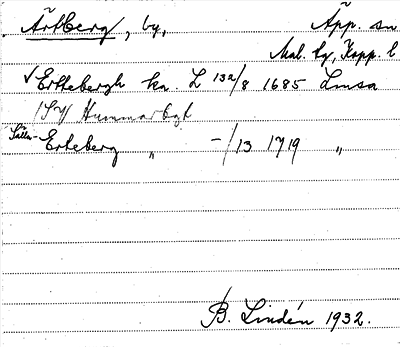 Ärtberg, by, Äpp. sn
Mal. bg, Kopp. l
√ Erttebergh ka. L 132/8 1685 Lmsa
/SO/ Hummarbyh
Säller- Erteberg „ -/13 1719 „
B. Lindén 1932.